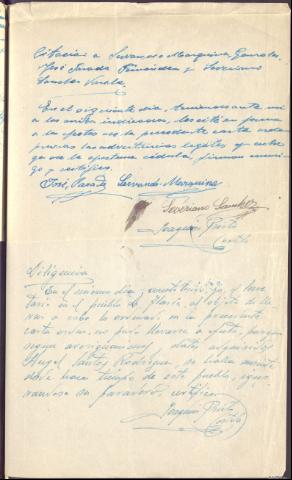 Citación a Servando Marquina González,
José Parada Fernández y Severiano
Sánchez Varela
En el siguiente día, teniendo ante mi
a los antes indicados, les cité en forma
a los efectos de la precedente carta orden
previas las advertencias legales y entre
ga de la oportuna cédula, firman conmi
go y certifico.
José Parada Servando Marquina
Severiano Sanchez
Joaquín Prieto
Diligencia
En el mismo día, constituido yo, el Secre
tario en el pueblo de, al objeto de lle
var a cabo lo ordenado en la precedente
carta orden, no pudo llevarse a efecto, porque
segun averiguaciones, datos adquiridos
Angel Santos Rodríguez, se halla ausente
desde hace tiempo de este pueblo, igno
randose su paradero, certifico
Joaquín Prieto